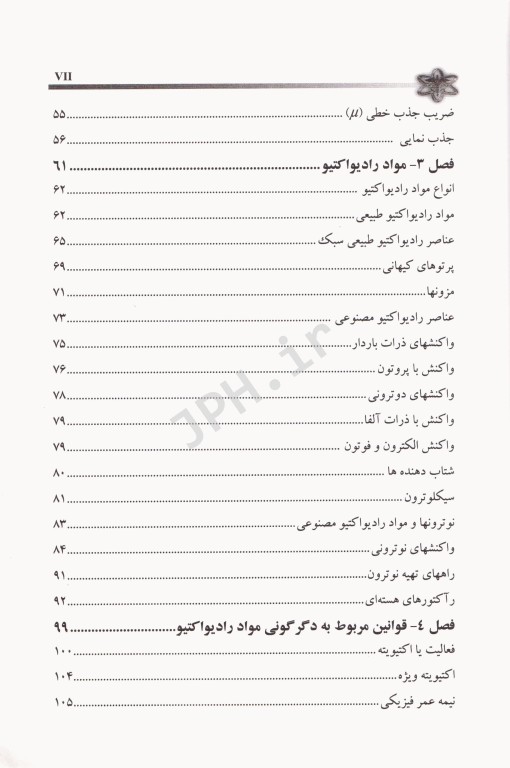 VII
ضریب جذب خطی (μ) ................ ۵۵
جذب نمایی ................ ۵۶
فصل ۳- مواد رادیواکتیو ................ ۶۱
انواع مواد رادیواکتیو ................ ۶۲
مواد رادیواکتیو طبیعی ................ ۶۲
عناصر رادیواکتیو طبیعی سبک ................ ۶۵
پرتوهای کیهانی ................ ۶۹
مزونها ................ ۷۱
عناصر رادیواکتیو مصنوعی ................ ۷۳
واکنشهای ذرات باردار ................ ۷۵
واکنش با پروتون ................ ۷۶
واکنشهای دوترونی ................ ۷۸
واکنش با ذرات آلفا ................ ۷۹
واکنش الکترون و فوتون ................ ۷۹
شتاب دهنده ها ................ ۸۰
سیکلوترون ................ ۸۱
نوترونها و مواد رادیواکتیو مصنوعی ................ ۸۳
واکنشهای نوترونی ................ ۸۴
راههای تهیه نوترون ................ ۹۱
رآکتورهای هسته‌ای ................ ۹۲
فصل ۴- قوانین مربوط به دگرگونی مواد رادیواکتیو ................ ۹۹
فعالیت یا اکتیویته ................ ۱۰۰
اکتیویته ویژه ................ ۱۰۴
نیمه عمر فیزیکی ................ ۱۰۵
JPH.ir